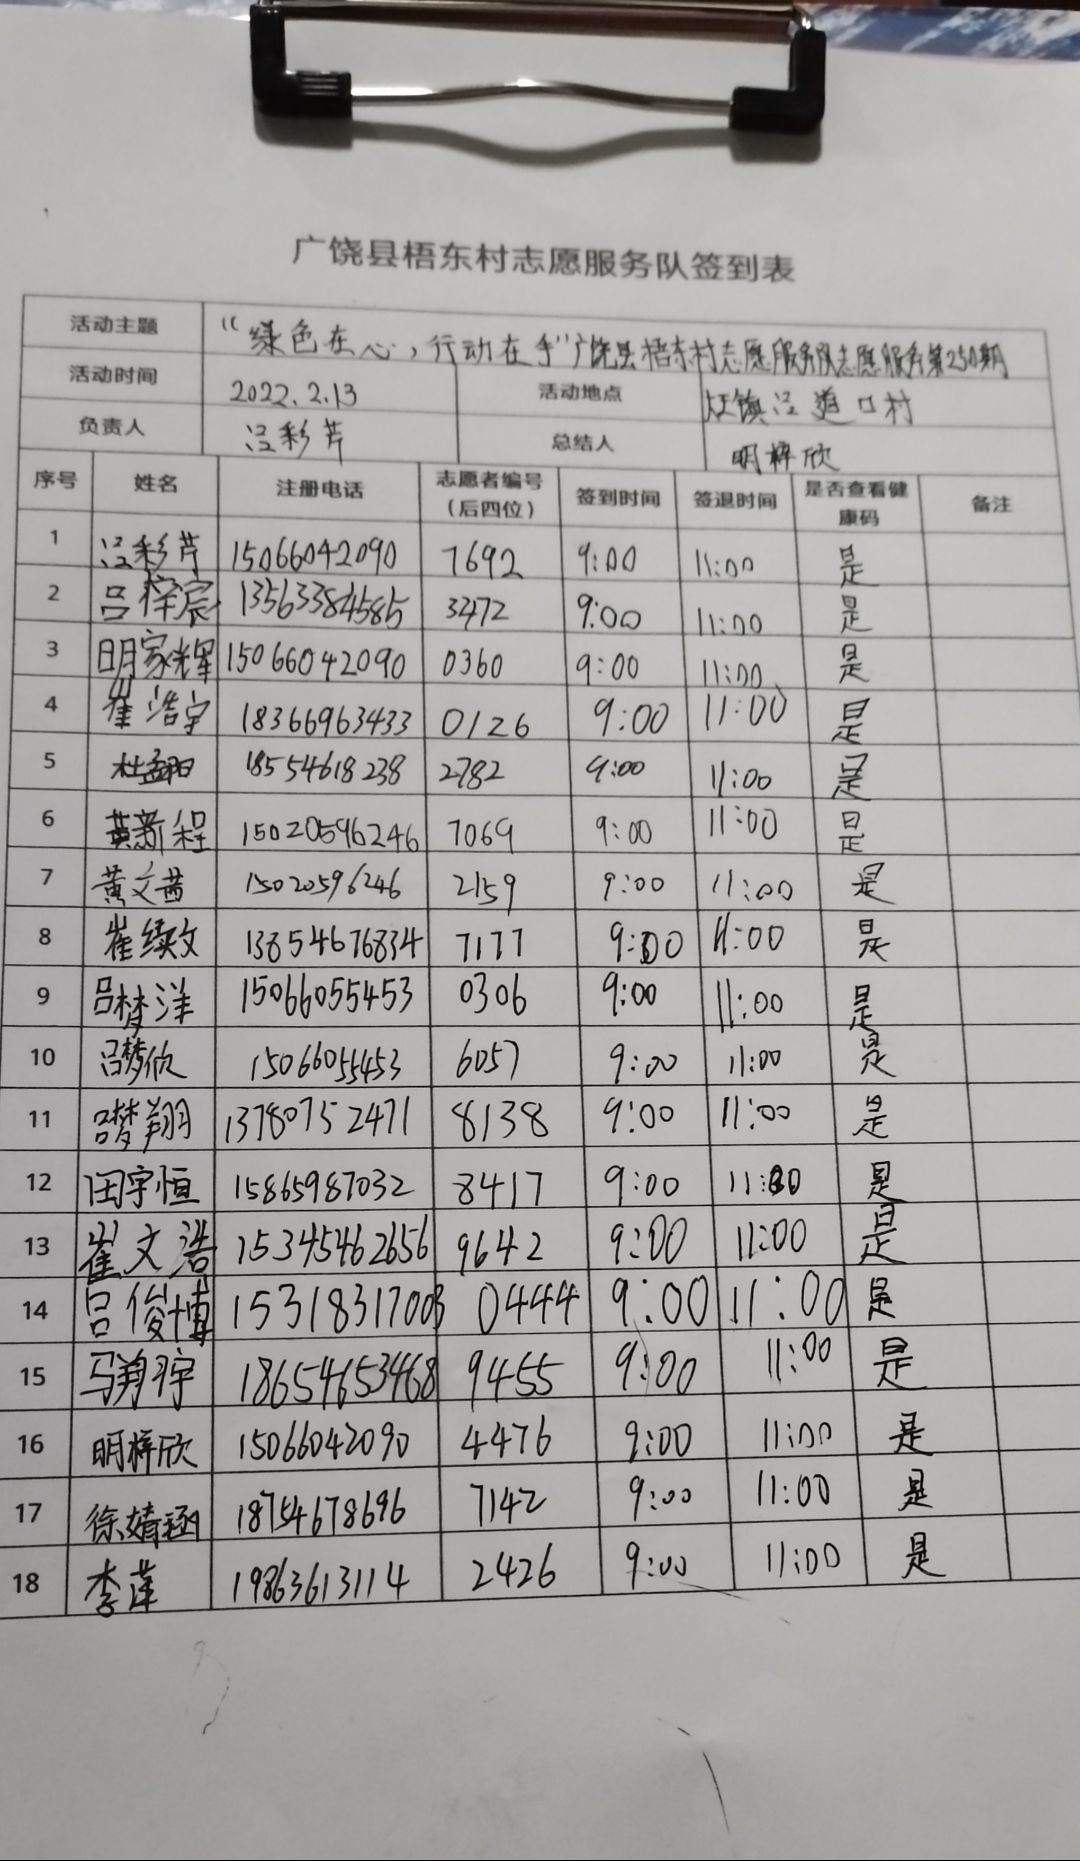 广饶县梧东村志愿服务队签到表
活动主题 “绿色在心，行动在手”广饶县梧东村志愿服务队志愿服务第250期
活动时间 2022.2.13 活动地点 镇吕道口村
负责人 吕彩芹 总结人 明梓欣
序号 姓名 注册电话 志愿者编号（后四位） 签到时间 签退时间 是否查看健康码 备注
1 吕彩芹 15066042090 7692 9:00 11:00 是
2 吕梓宸 13563384585 3472 9:00 11:00 是
3 明家辉 15066042090 0360 9:00 11:00 是
4 崔浩宇 18366963433 0126 9:00 11:00 是
5 杜孟阳 18554618238 2782 9:00 11:00 是
6 黄新程 15020596246 7069 9:00 11:00 是
7 黄文茜 15020596246 2159 9:00 11:00 是
8 崔缤文 13854676834 7177 9:00 11:00 是
9 吕梦洋 15066055453 0306 9:00 11:00 是
10 吕梦欣 15066055453 6057 9:00 11:00 是
11 吕梦翔 13780752471 8138 9:00 11:00 是
12 田宇恒 15865987032 8417 9:00 11:00 是
13 崔文浩 15345462656 9642 9:00 11:00 是
14 吕俊博 15318317003 0444 9:00 11:00 是
15 马翔宇 18654653468 9455 9:00 11:00 是
16 明梓欣 15066042090 4476 9:00 11:00 是
17 徐婧涵 18754678696 7142 9:00 11:00 是
18 李莲 19863613114 2426 9:00 11:00 是